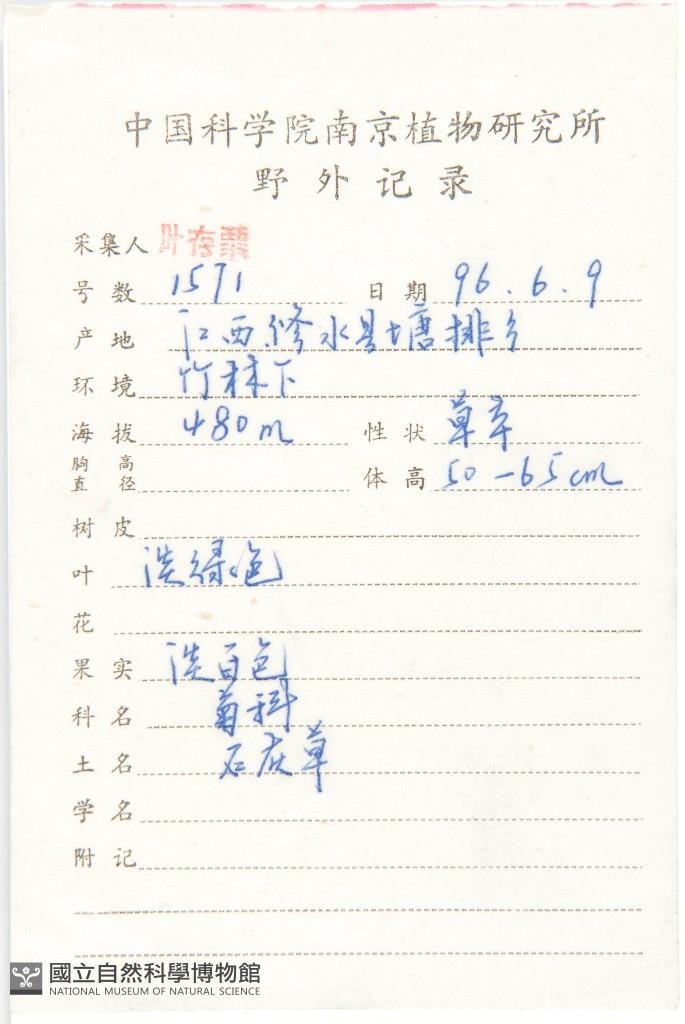 中国科学院南京植物研究所
野外记录
采集人 叶存粟
号数 1571 日期 96.6.9
产地 江西修水县塘排乡
环境 竹林下
海拔 480m 性状 草本
胸高直径 体高 50-65cm
树皮
叶 淡绿色
花
果实 淡白色
科名 菊科
土名 石灰草
学名
附记
國立自然科學博物館
NATIONAL MUSEUM OF NATURAL SCIENCE